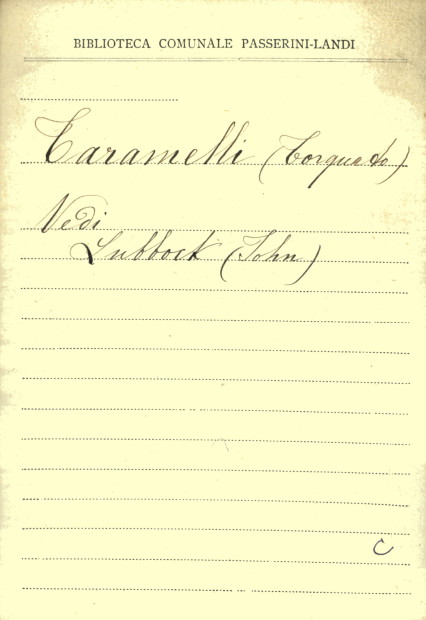 BIBLIOTECA COMUNALE PASSERINI-LANDI
Taramelli (Torquato)
Vedi
Lubbock (John)
C